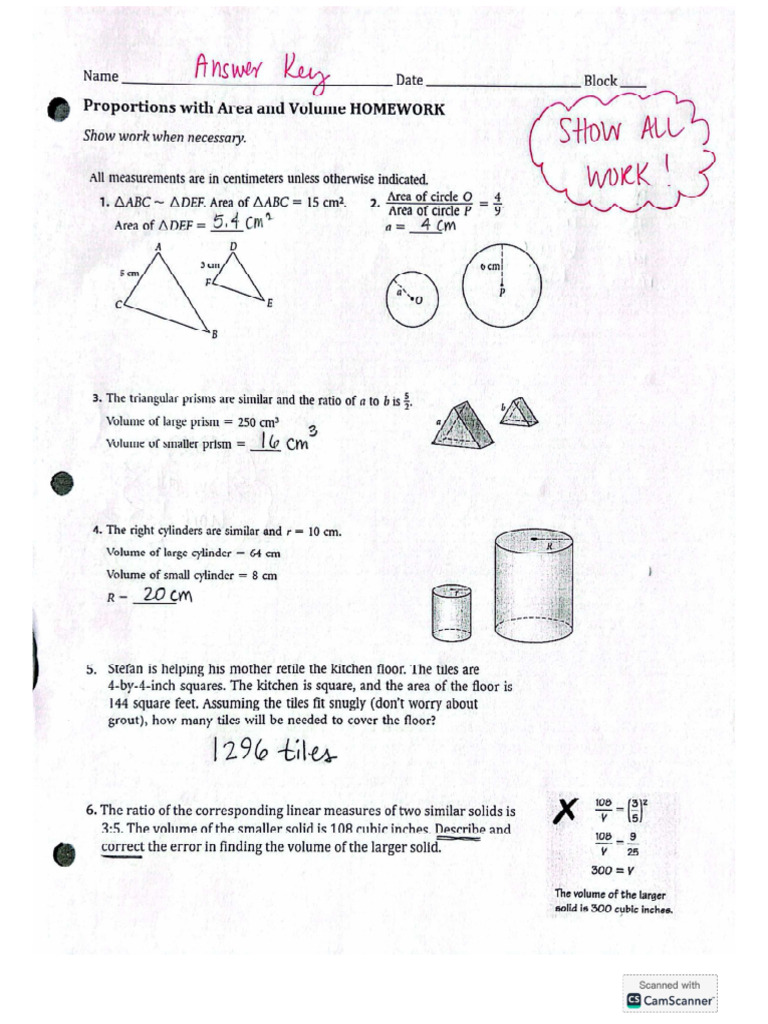 Name Answer Key Date Block
Proportions with Area and Volume HOMEWORK
Show work when necessary.
SHOW ALL
WORK!
All measurements are in centimeters unless otherwise indicated.
1. △ABC ~ △DEF. Area of △ABC = 15 cm².
Area of △DEF = 5.4 cm²
A
D
5 cm
3 cm
F
E
C
B
2. Area of circle O / Area of circle P = 4/9
a = 4 cm
6 cm
a
O
P
3. The triangular prisms are similar and the ratio of a to b is 5/2.
Volume of large prism = 250 cm³
Volume of smaller prism = 16 cm³
a
b
4. The right cylinders are similar and r = 10 cm.
Volume of large cylinder = 64 cm
Volume of small cylinder = 8 cm
R = 20 cm
r
R
5. Stefan is helping his mother retile the kitchen floor. The tiles are
4-by-4-inch squares. The kitchen is square, and the area of the floor is
144 square feet. Assuming the tiles fit snugly (don't worry about
grout), how many tiles will be needed to cover the floor?
1296 tiles
6. The ratio of the corresponding linear measures of two similar solids is
3:5. The volume of the smaller solid is 108 cubic inches. Describe and
correct the error in finding the volume of the larger solid.
X
108/V = (3/5)²
108/V = 9/25
300 = V
The volume of the larger
solid is 300 cubic inches.
Scanned with
CS CamScanner